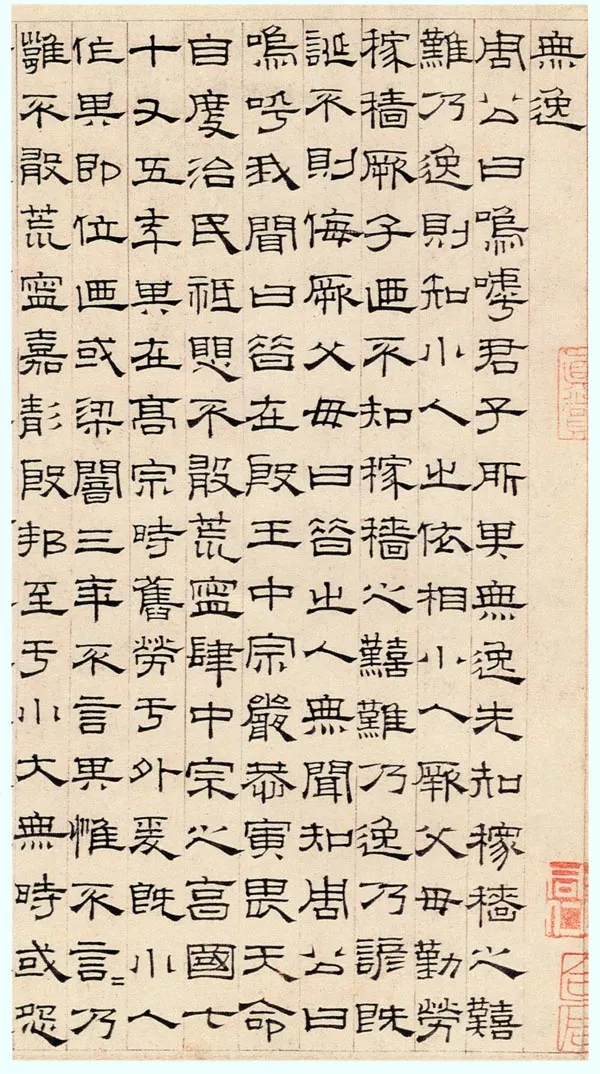 無逸
周公曰嗚嘑君子所其無逸先知稼穡之囏
難乃逸則知小人之依相小人厥父母勤勞
稼穡厥子廼不知稼穡之囏難乃逸乃諺既
誕不則侮厥父母曰昔之人無聞知周公曰
嗚呼我聞曰昔在殷王中宗嚴恭寅畏天命
自度治民祗愳不敢荒寧肆中宗之享國七
十又五年其在高宗時舊勞于外爰既小人
作其即位廼或梁闇三年不言其惟不言〻乃
雝不敢荒寧嘉靖殷邦至于小大無時或怨